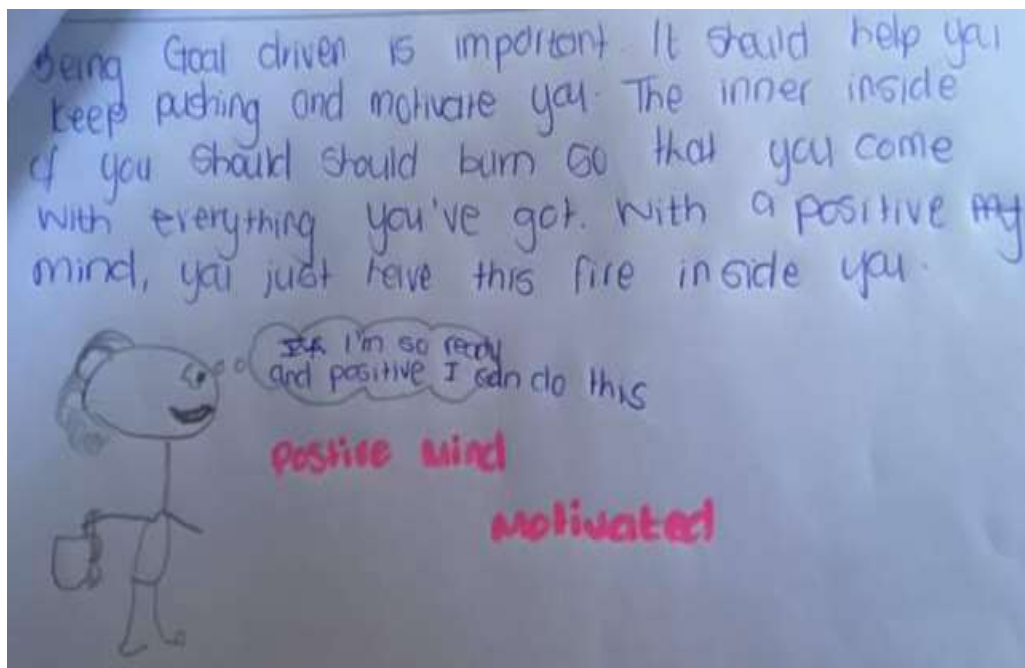 Being Goal driven is important. It should help you
keep pushing and motivate you. The inner inside
of you should should burn so that you come
with everything you've got. With a positive my
mind, you just have this fire inside you.
I'm so ready
and positive I can do this
Postive Mind
Motivated